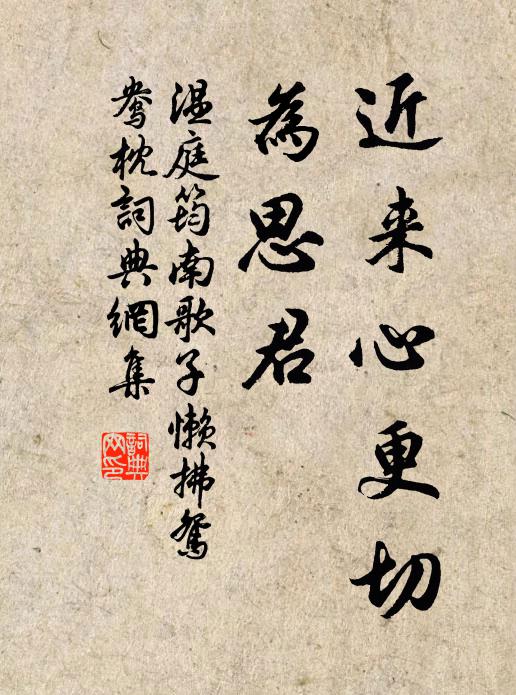 近来心更切
為思君
温庭筠南歌子懒拂鸳
鸯枕詞典網集
詞典
网印